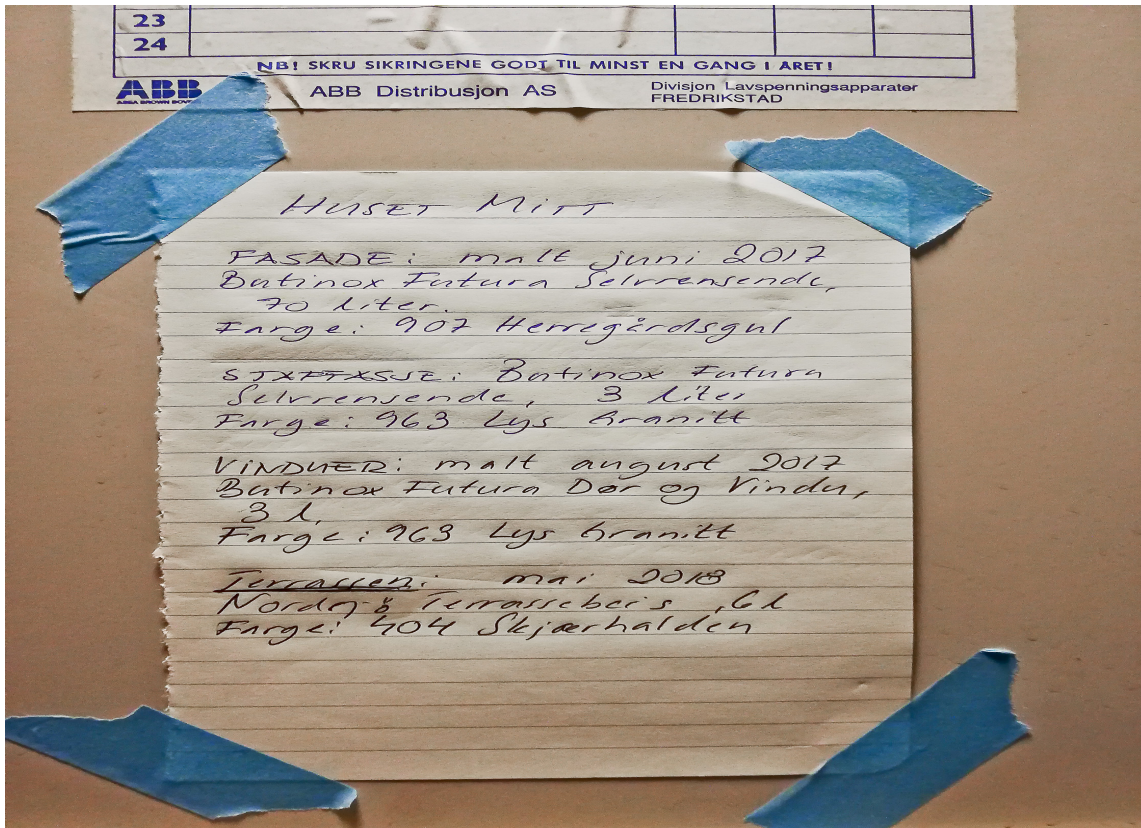 23
24
NB! SKRU SIKRINGENE GODT TIL MINST EN GANG I ÅRET!
ABB
ASEA BROWN BOVERI
ABB Distribusjon AS
Divisjon Lavspenningsapparater
FREDRIKSTAD
HUSET MITT
FASADE: malt juni 2017
Butinox Futura Selvrensende,
70 liter.
Farge: 907 Herregårdsgul
Butinox Futura
Selvrensende, 3 liter
Farge: 963 Lys Granitt
VINDUER: malt august 2017
Butinox Futura Dør og Vindu,
3 l,
Farge: 963 Lys Granitt
Terrassen: mai 2018
Nordsjö Terrassebeis, 6 l
Farge: 404 Skjærhalden